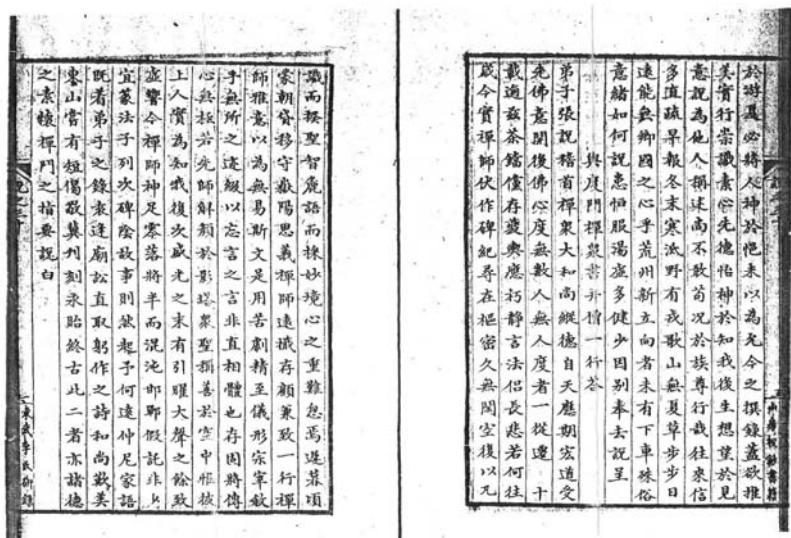 於游愚必將人神於悒未以為允今之撰錄蓋欲推
美實行崇讖素心先德怡神於知我後生想葉於見
意說為他人撰述尚不敢苟況於族尊行哉往來信
多直疏早報冬末寒沍野有戎歌山無夏草步步日
遠能無鄉國之心乎荒州新立向者未有下車殊俗
意緒如何說患恒服湯藥多健少因別奉去說呈
與度門禪眾書并僧一行答
弟子張說稽首禪眾大和尚縱德自天應期宏道受
先佛意開後佛心度無數人無人度者一從遷
十
載過茲荼鐺儻存發輿應朽靜言法侶長悲若何往
歲今實禪師伏作碑紀尋在樞密久無閒空復以兀
讖而揆聖智麁語而採妙境心之重難怠焉遲葉頃
蒙朝貸移守嶽陽思義禪師遠讖存顧兼致一行禪
師雅意以為無易斯文是用苦劖精至儀形宗宰敘
乎無所之迹綴以忘言之言非直相體也存因將傳
心無極若先師斛顏於影塔眾聖攝善於空中帳披
上人賓為知我復次盛光之末有引曜大聲之餘致
盛響今禪師神足零落將半而混沌邯鄲假託非少
宜蒙法子列次碑陰故事則然起予何遠仲尼家語
既著弟子之錄袁逢廟訟直取躬作之詩和尚歎美
東山嘗有短偈敬冀刊刻永貽終古此二者亦諸德
之素懷禪門之指要說白